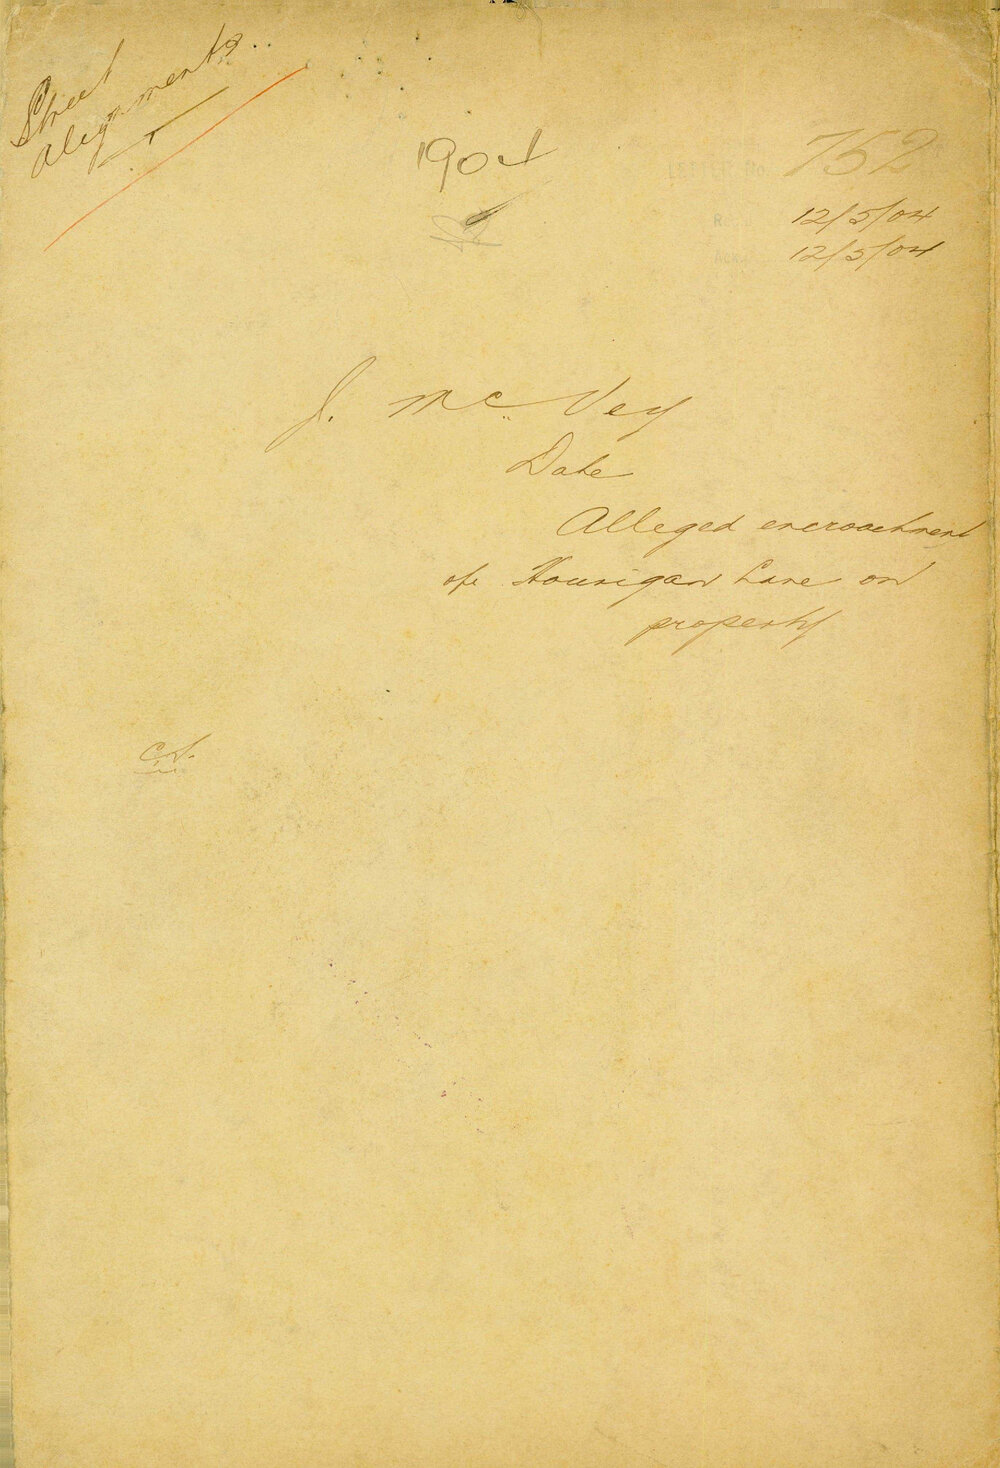 Street
Alignments
1904
LETTER No. 752
R 12/5/04
Ack 12/5/04
J. McVey
Date
Alleged encroachment
of Hourigan Lane on
property